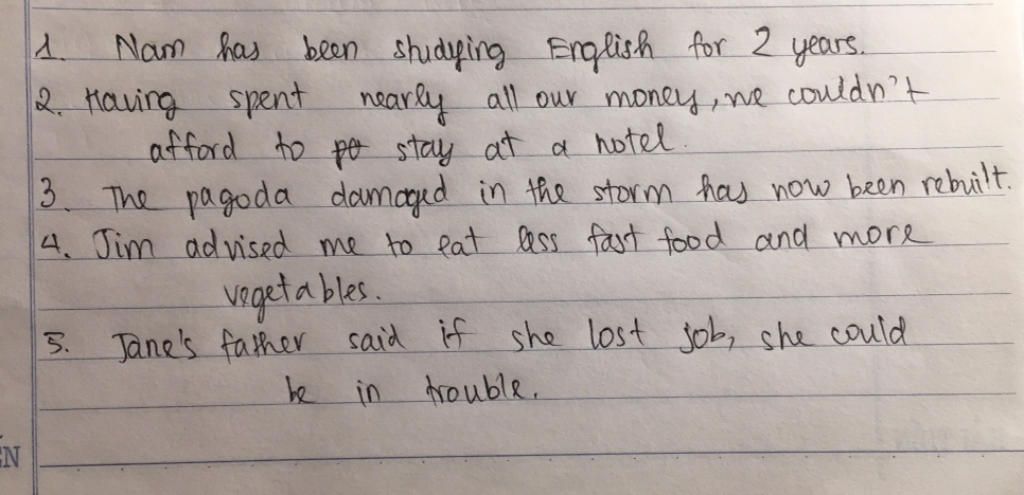 1. Nam has been studying English for 2 years.
2. Having spent nearly all our money, we couldn't
afford to stay at a hotel.
3. The pagoda damaged in the storm has now been rebuilt.
4. Jim advised me to eat less fast food and more
vegetables.
5. Jane's father said if she lost job, she could
be in trouble.
N